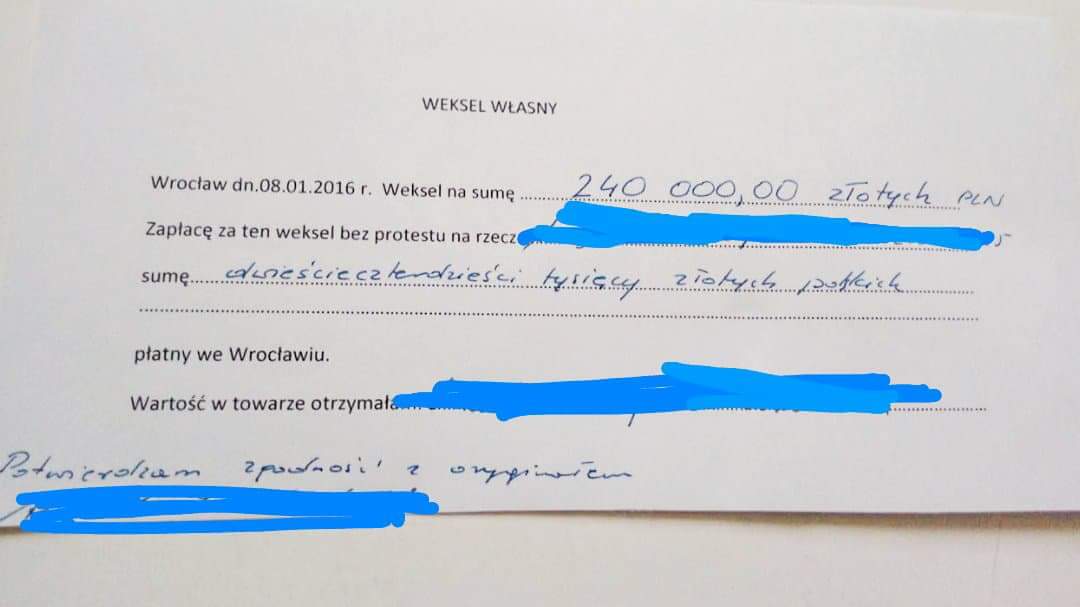 WEKSEL WŁASNY
Wrocław dn.08.01.2016 r. Weksel na sumę ......240 000,00 złotych PLN
Zapłacę za ten weksel bez protestu na rzecz
sumę.....dwieścieczterdzieści tysięcy złotych polskich
płatny we Wrocławiu.
Wartość w towarze otrzymała
Potwierdzam zgodność z oryginałem